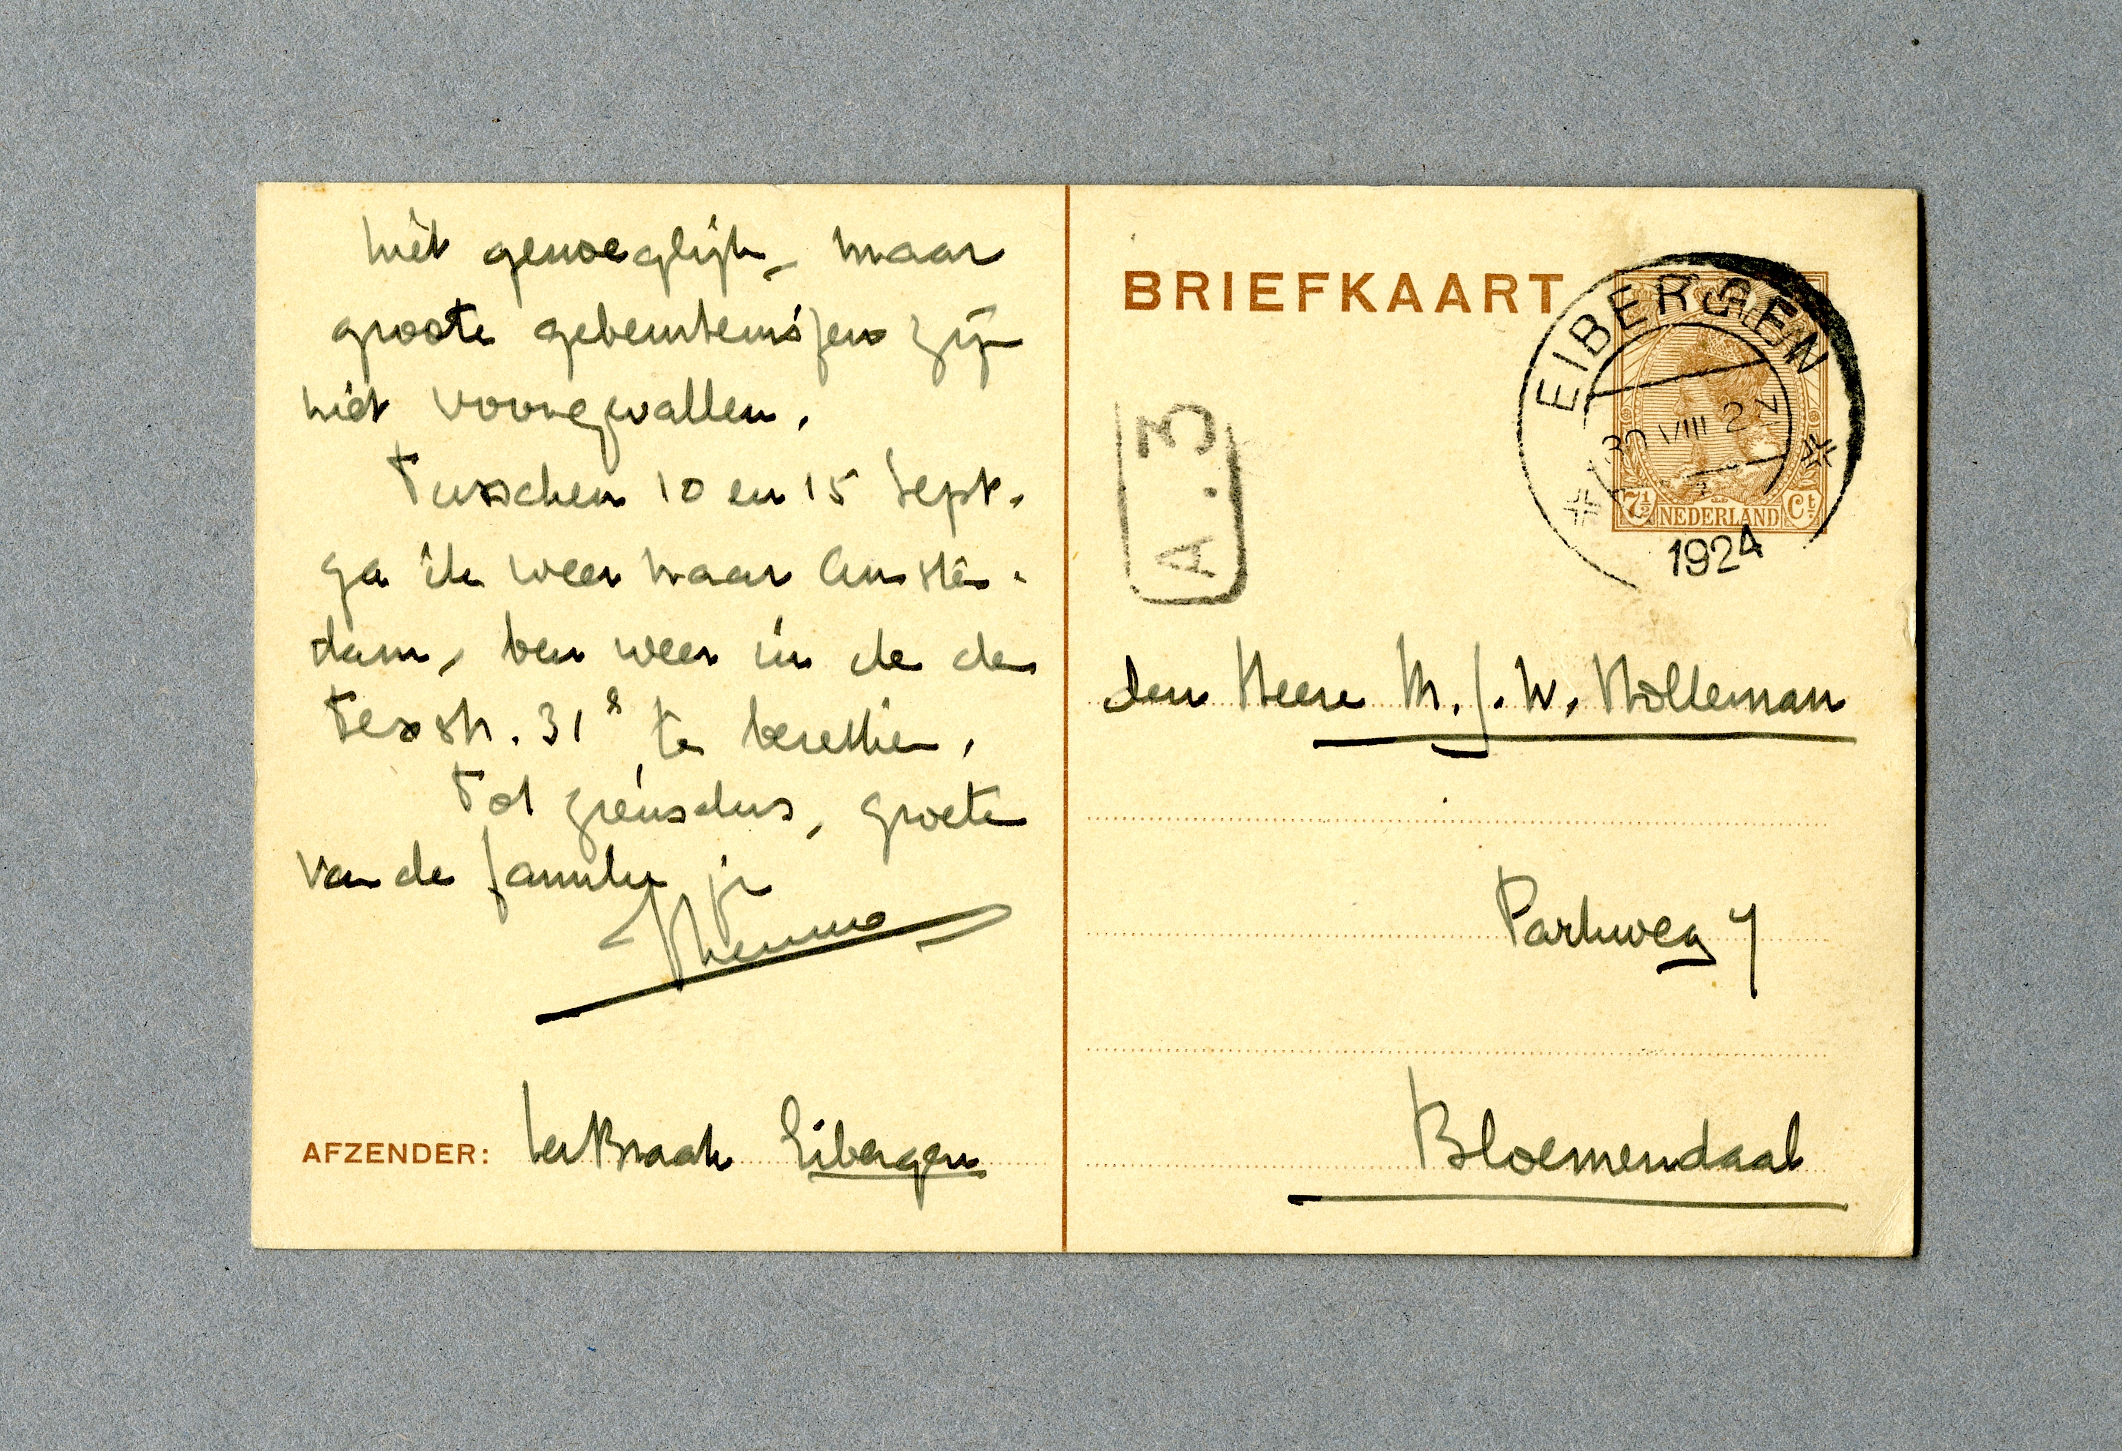 niet genoeglijk, maar
groote gebeurtenissen zijn
niet voorgevallen.
Tusschen 10 en 15 Sept.
ga ik weer naar Amster-
dam, ben weer in de den
Texstr. 31 te bereiken.
Tot ziens dus, groeten
van de familie je
Menno
AFZENDER: ter Braak Eibergen
BRIEFKAART
EIBERGEN
30 VIII 2
1924
7½ NEDERLAND Ct
A.3
den Heere M. J. W. Holleman
Parkweg 7
Bloemendaal